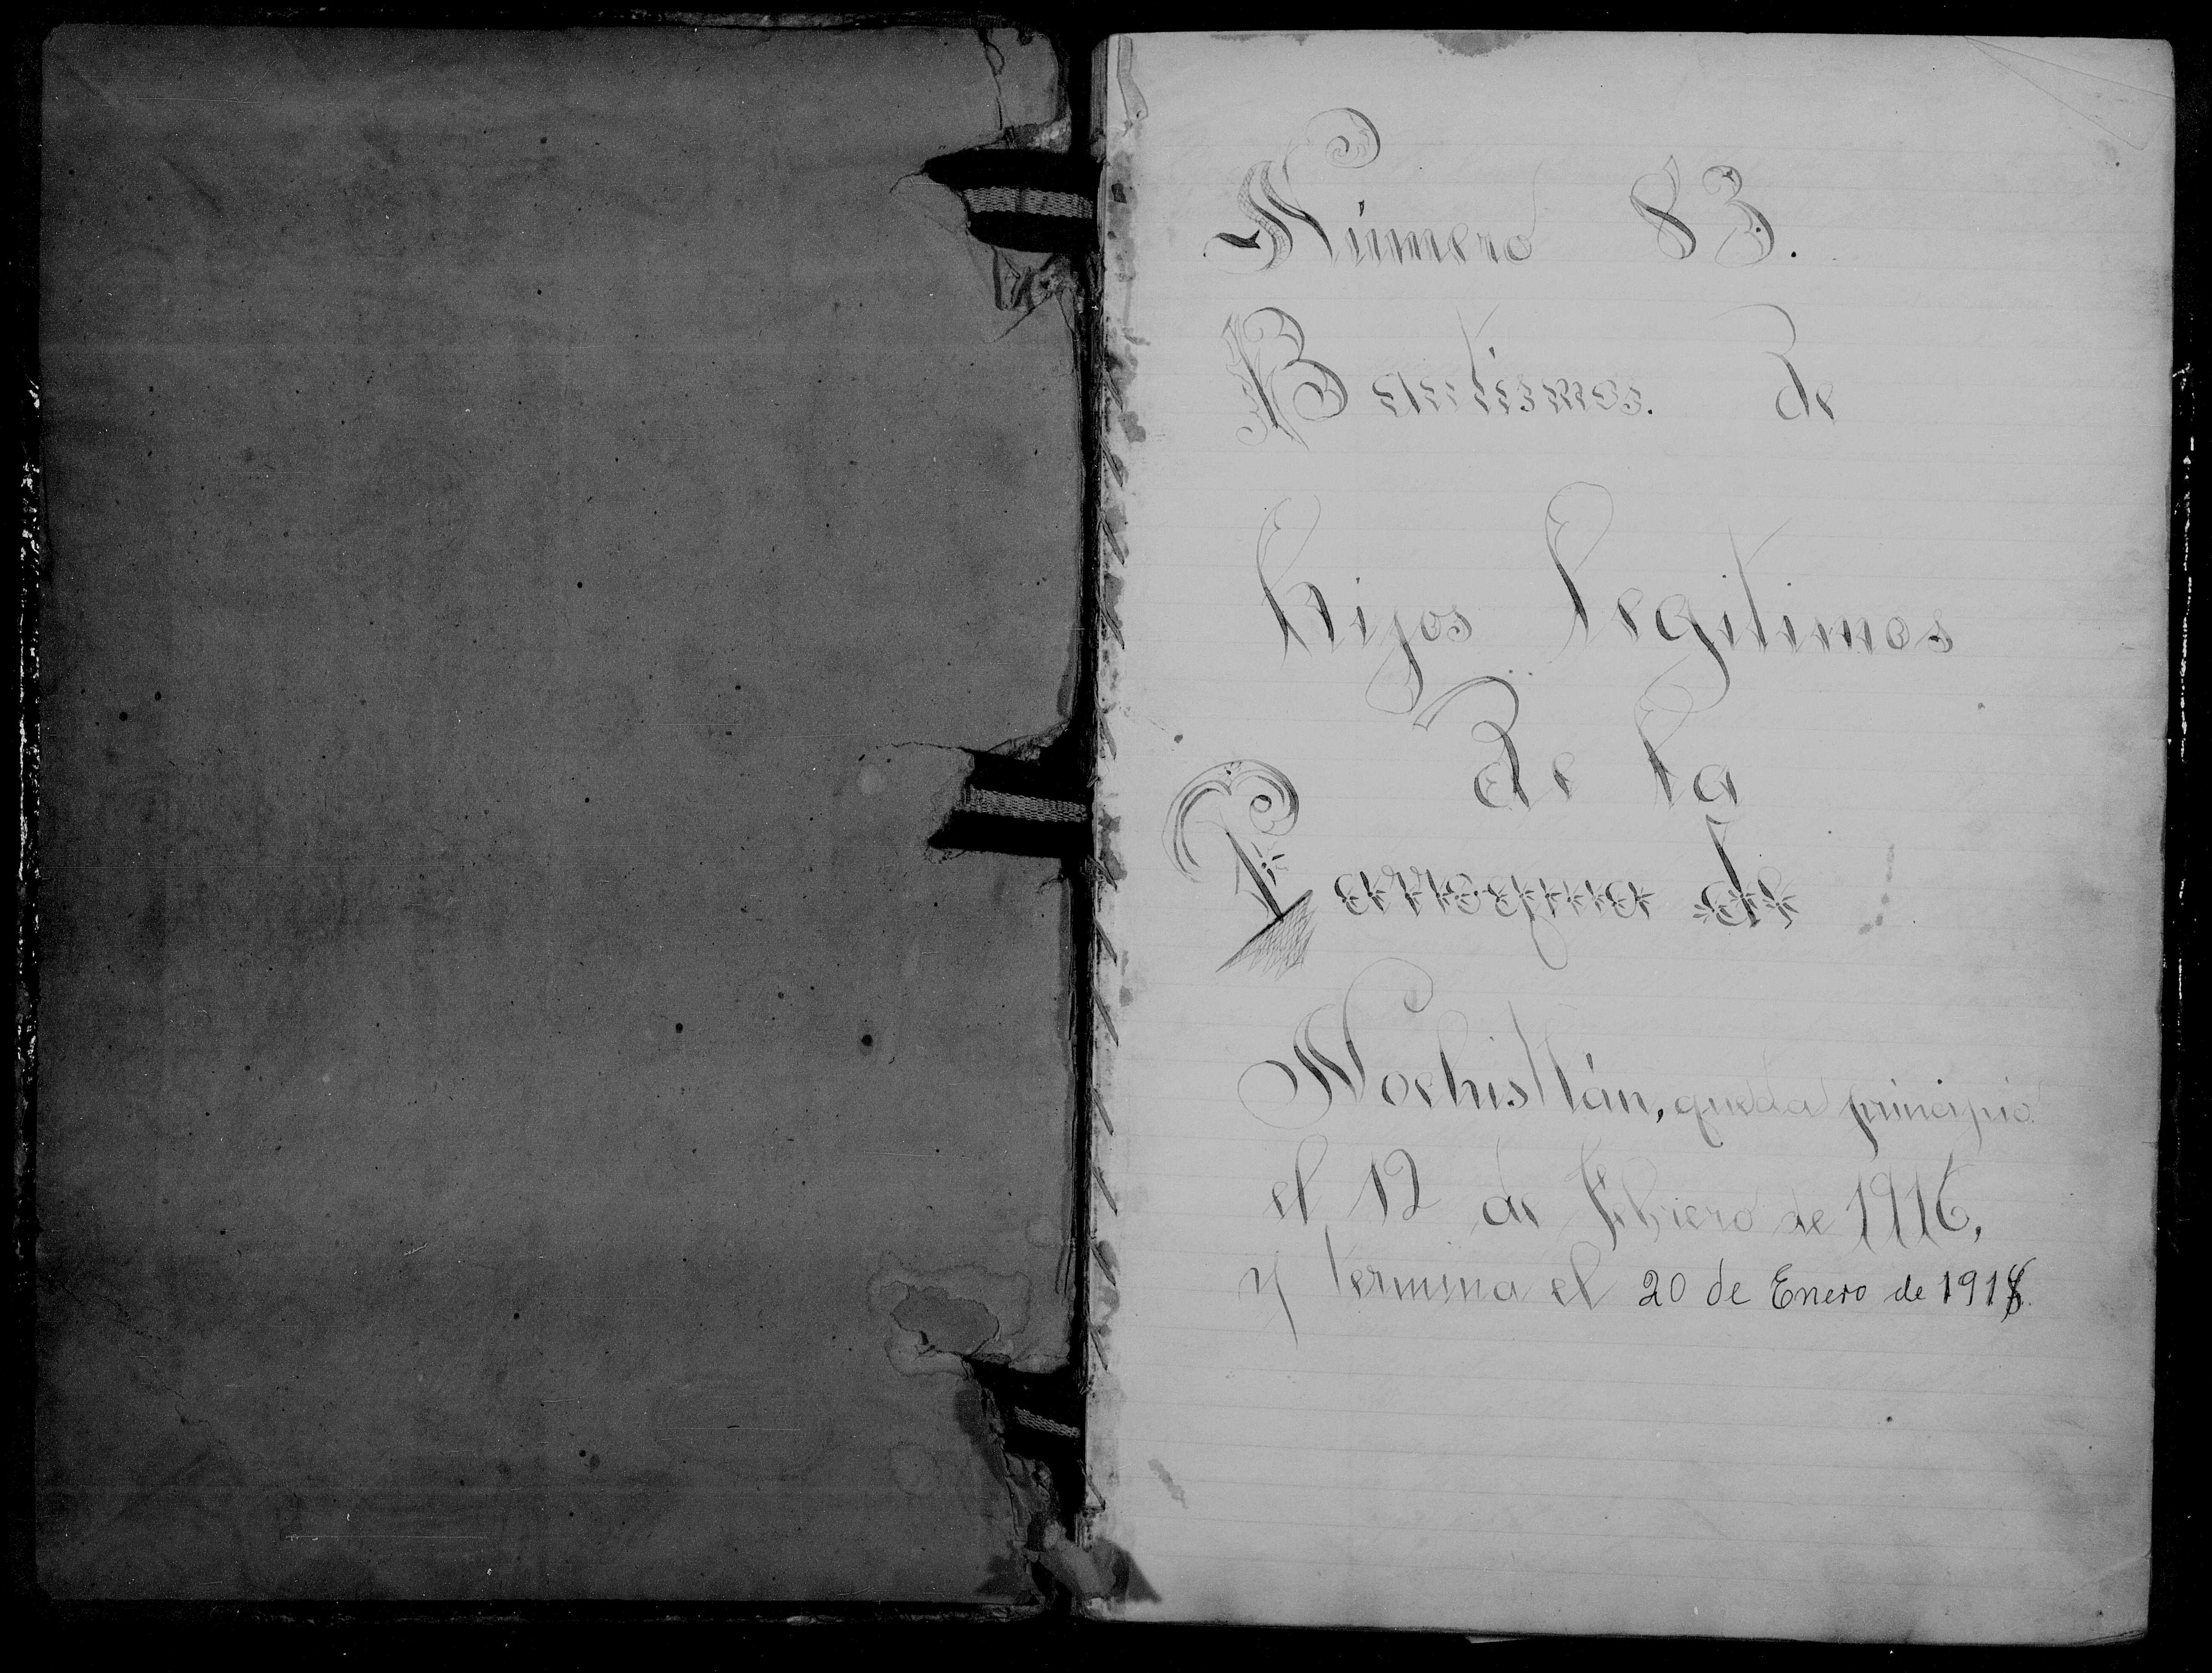 Número 83.
Bautismos. de
hijos legitimos
de la
Parroquia de
Nochistlán, queda principio
el 12 de Febrero de 1916,
y termina el 20 de Enero de 1918.